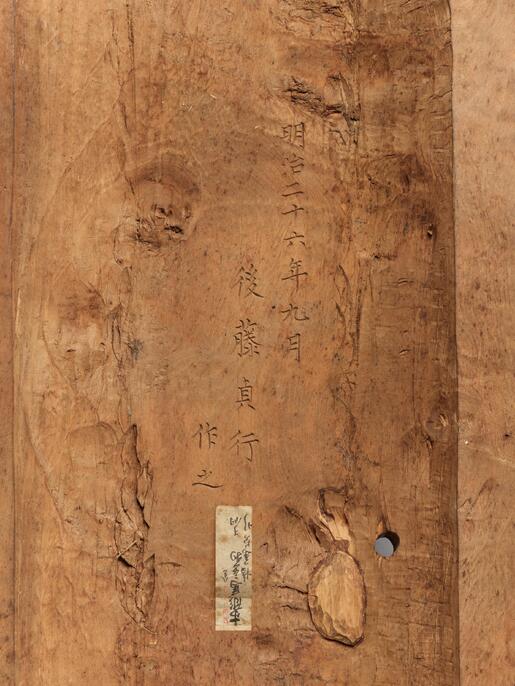 明治二十六年九月
後藤貞行
作之